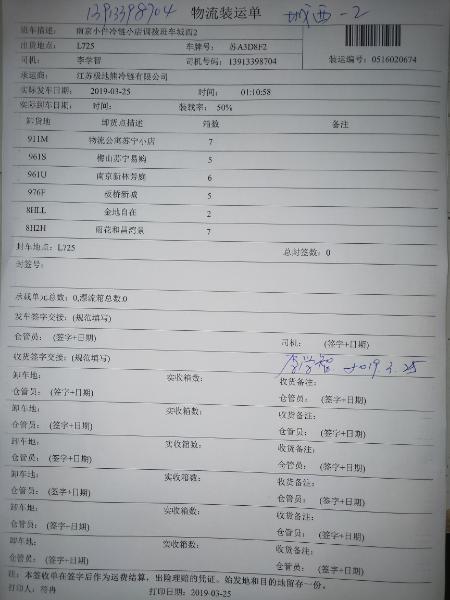 13913398704 物流装运单 城西-2
班车描述: 南京小件冷链小店调拨班车城西2
出货地点: L725 车牌号: 苏A3D8F2
司机: 李学智 司机号码: 13913398704 装运编号: 0516020674
承运商: 江苏极地熊冷链有限公司
实际发车日期: 2019-03-25 时间: 01:10:58
实际卸车日期: 时间: 装载率: 50%
卸货地 卸货点描述 箱数 备注
911M 物流公寓苏宁小店 7
961S 梅山苏宁易购 5
961U 南京新林芳庭 6
976F 板桥新城 5
8HLL 金地自在 2
8H2H 雨花和昌湾景 7
封车地点: L725 总封签数: 0
封签号:
承载单元总数: 0,漂流箱总数:0
发车签字交接: (规范填写)
仓管员: (签字+日期) 司机: (签字+日期)
收货签字交接: (规范填写) 李学智 2019.3.25
卸车地: 实收箱数: 收货备注:
仓管员: (签字+日期) 仓管员: (签字+日期)
卸车地: 实收箱数: 收货备注:
仓管员: (签字+日期) 仓管员: (签字+日期)
卸车地: 实收箱数: 收货备注:
仓管员: (签字+日期) 仓管员: (签字+日期)
卸车地: 实收箱数: 收货备注:
仓管员: (签字+日期) 仓管员: (签字+日期)
卸车地: 实收箱数: 收货备注:
仓管员: (签字+日期) 仓管员: (签字+日期)
卸车地: 实收箱数: 收货备注:
仓管员: (签字+日期) 仓管员: (签字+日期)
注: 本签收单在签字后作为运费结算, 出险理赔的凭证。始发地和目的地留存一份。
打印人: 符冉 打印日期: 2019-03-25